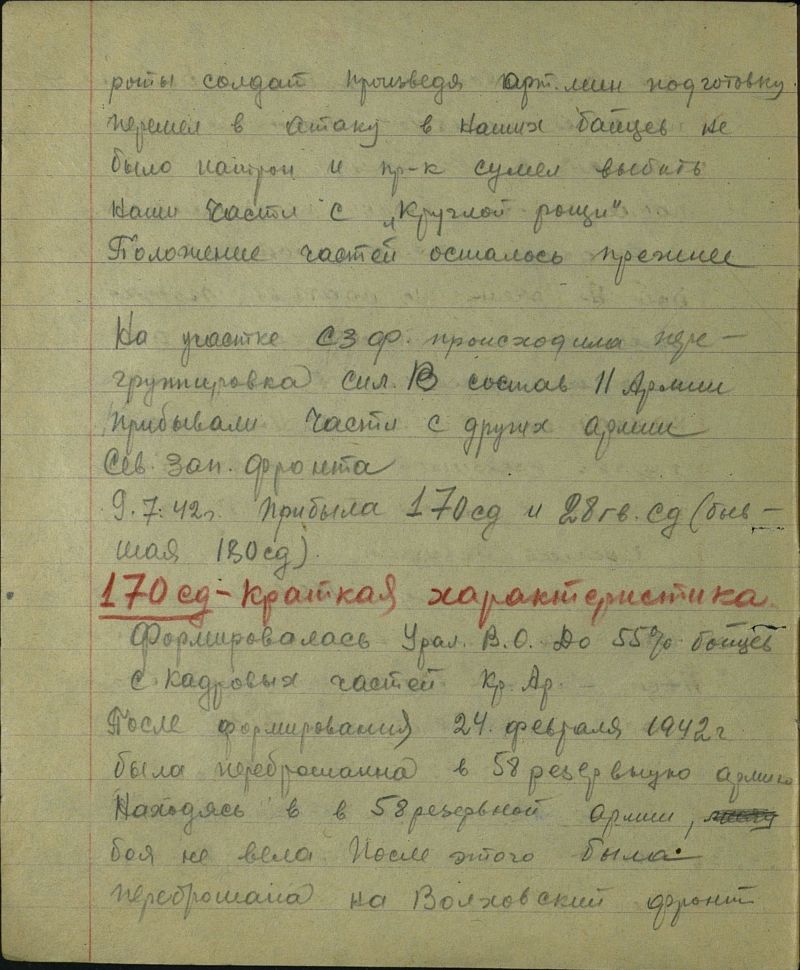 роты солдат произведя арт.мин подготовку
перешел в атаку в наших бойцев не
было патрон и пр-к сумел выбить
наши части с „Круглой рощи"
Положение частей осталось прежнее
На участке СЗФ. происходила пере-
группировка сил. В состав 11 Армии
прибывали части с других армии
Сев. Зап. фронта
9.7.42г. прибыла 170сд и 28гв.сд (быв-
шая 180сд).
170сд-краткая характеристика.
Формировалась Урал. В.О. До 55% бойцев
с кадровых частей Кр. Ар.
После формирования 24. февраля 1942г
была переброшанна в 58 резервную армию
Находясь в в 58 резервной армии,
боя не вела После этого была
переброшана на Волховский фронт